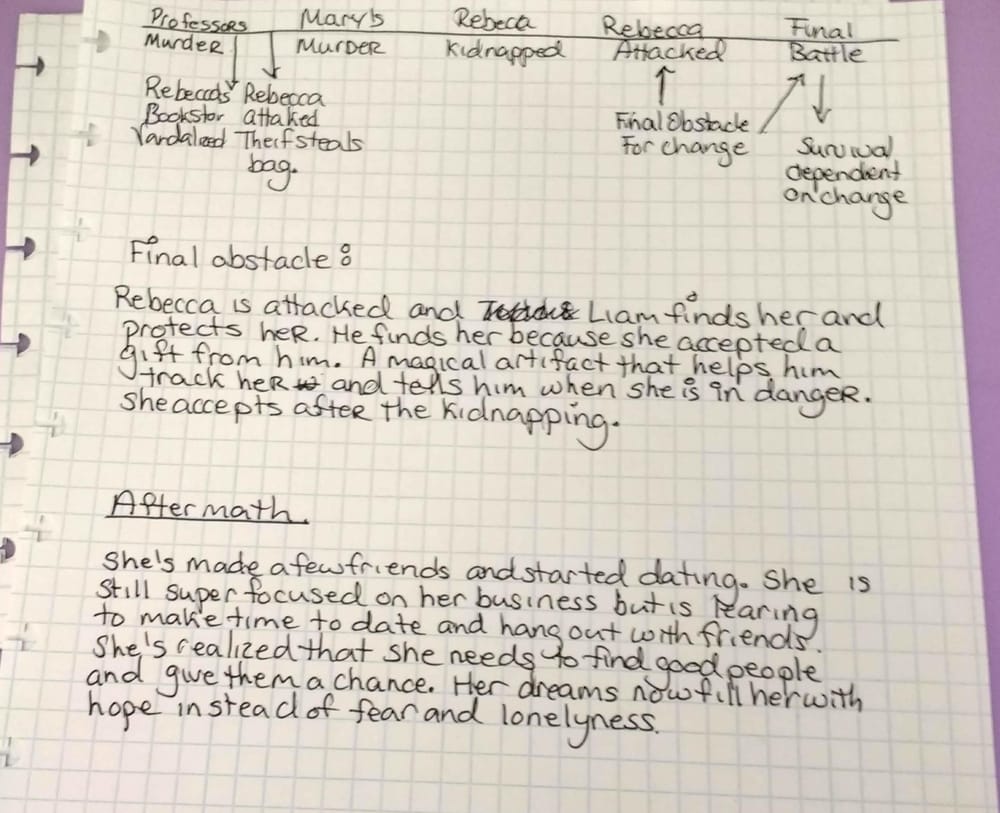 Professors Mary's Rebeca Rebecca Final
Murder Murder Kidnapped Attacked Battle
Rebeccas Rebecca
Bookstor attaked
Vandalized Theif steals
bag.
Final Obstacle
For change
Survival
dependent
on change
Final obstacle:
Rebecca is attacked and Liam finds her and
protects her. He finds her because she accepted a
gift from him. A magical artifact that helps him
track her and tells him when she is in danger.
She accepts after the kidnapping.
Aftermath.
She's made a few friends and started dating. She is
still super focused on her business but is learing
to make time to date and hang out with friends.
She's realized that she needs to find good people
and give them a chance. Her dreams now fill her with
hope instead of fear and lonelyness.